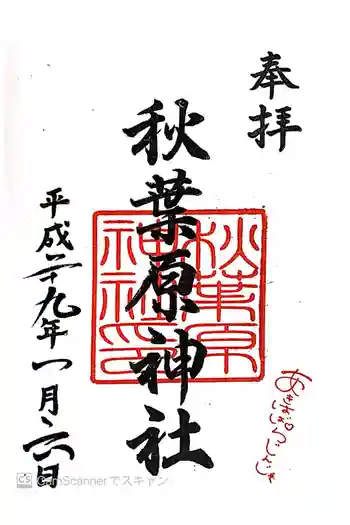 奉拝
秋葉原神社
秋葉原
神社印
平成二十九年一月六日
あきばはらじんじゃ
CS CamScannerでスキャン